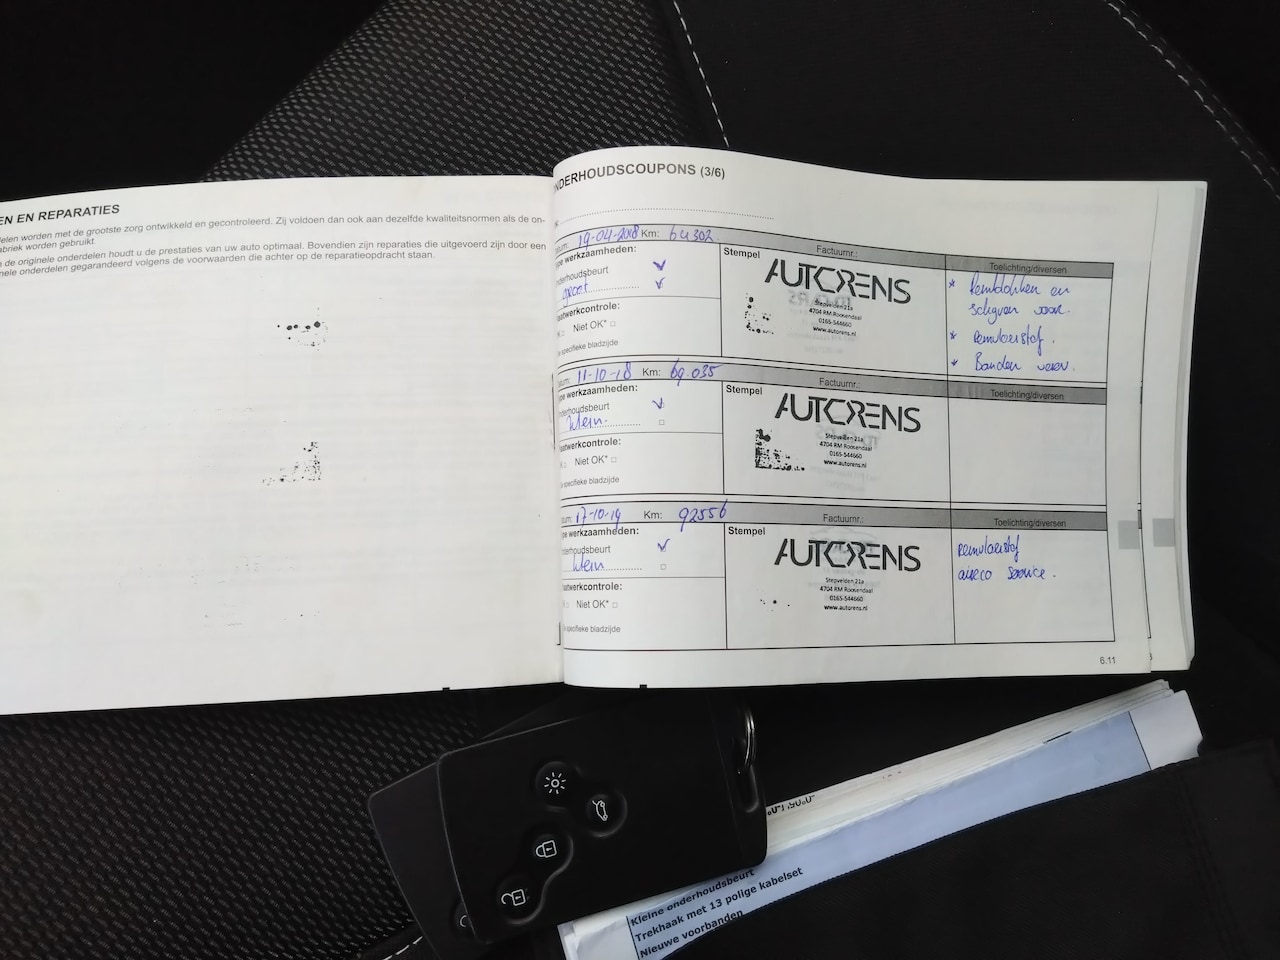 EN EN REPARATIES
delen worden met de grootste zorg ontwikkeld en gecontroleerd. Zij voldoen dan ook aan dezelfde kwaliteitsnormen als de on-
abriek worden gebruikt.
n de originele onderdelen houdt u de prestaties van uw auto optimaal. Bovendien zijn reparaties die uitgevoerd zijn door een
nele onderdelen gegarandeerd volgens de voorwaarden die achter op de reparatieopdracht staan.
NDERHOUDSCOUPONS (3/6)
atum: 19-04-2018 Km: 64302
Factuurnr.:
Toelichting/diversen
pe werkzaamheden:
nderhoudsbeurt
groot
aatwerkcontrole:
Niet OK*
e specifieke bladzijde
Stempel
AUTORENS
Stepvelden 21a
4704 RM Roosendaal
0165-544660
www.autorens.nl
* Remblokken en
schijven voor.
* remvloeistof.
* Banden
atum: 11-10-18 Km: 69.035
Factuurnr.:
Toelichting/diversen
pe werkzaamheden:
nderhoudsbeurt
klein.
aatwerkcontrole:
Niet OK*
e specifieke bladzijde
Stempel
AUTORENS
Stepvelden 21a
4704 RM Roosendaal
0165-544660
www.autorens.nl
atum: 17-10-19 Km: 92556
Factuurnr.:
Toelichting/diversen
pe werkzaamheden:
nderhoudsbeurt
klein
aatwerkcontrole:
Niet OK*
e specifieke bladzijde
Stempel
AUTORENS
Stepvelden 21a
4704 RM Roosendaal
0165-544660
www.autorens.nl
remvloeistof
aireco service.
6.11
Kleine onderhoudsbeurt
Trekhaak met 13 polige kabelset
Nieuwe voorbanden